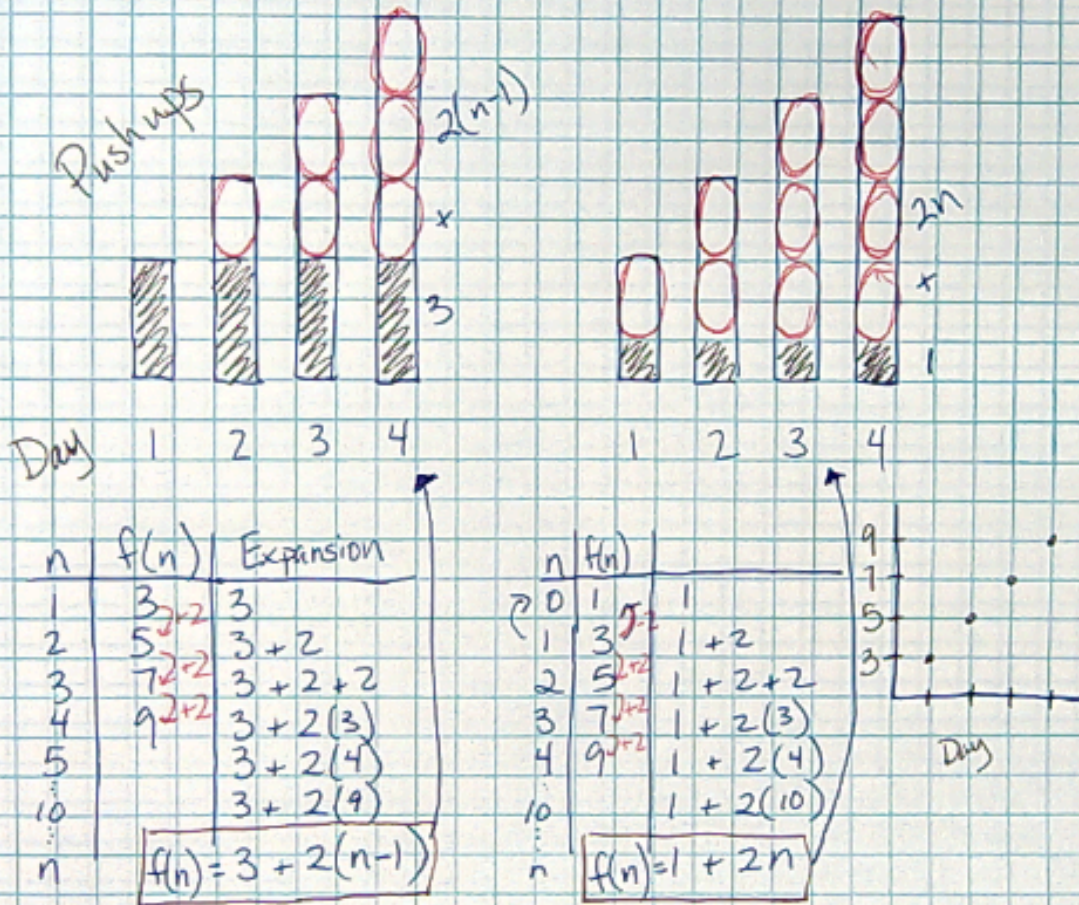 Pushups
2(n-1)
+
3
2n
+
1
Day 1 2 3 4
1 2 3 4
n f(n) Expansion
1 3 3
+2
2 5 3 + 2
+2
3 7 3 + 2 + 2
+2
4 9 3 + 2(3)
5 3 + 2(4)
10 3 + 2(9)
n f(n) = 3 + 2(n-1)
n f(n)
0 1 1
-2
1 3 1 + 2
+2
2 5 1 + 2 + 2
+2
3 7 1 + 2(3)
+2
4 9 1 + 2(4)
10 1 + 2(10)
n f(n) = 1 + 2n
9
7
5
3
Day